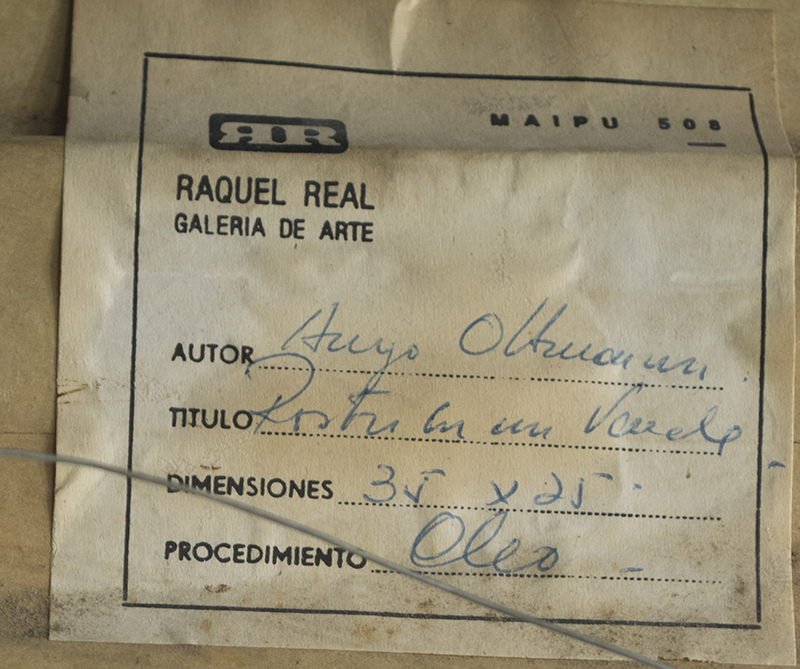 RR MAIPU 508
RAQUEL REAL
GALERIA DE ARTE
AUTOR Hugo Ottmann
TITULO Rostro en un
DIMENSIONES 35 x 25
PROCEDIMIENTO Oleo